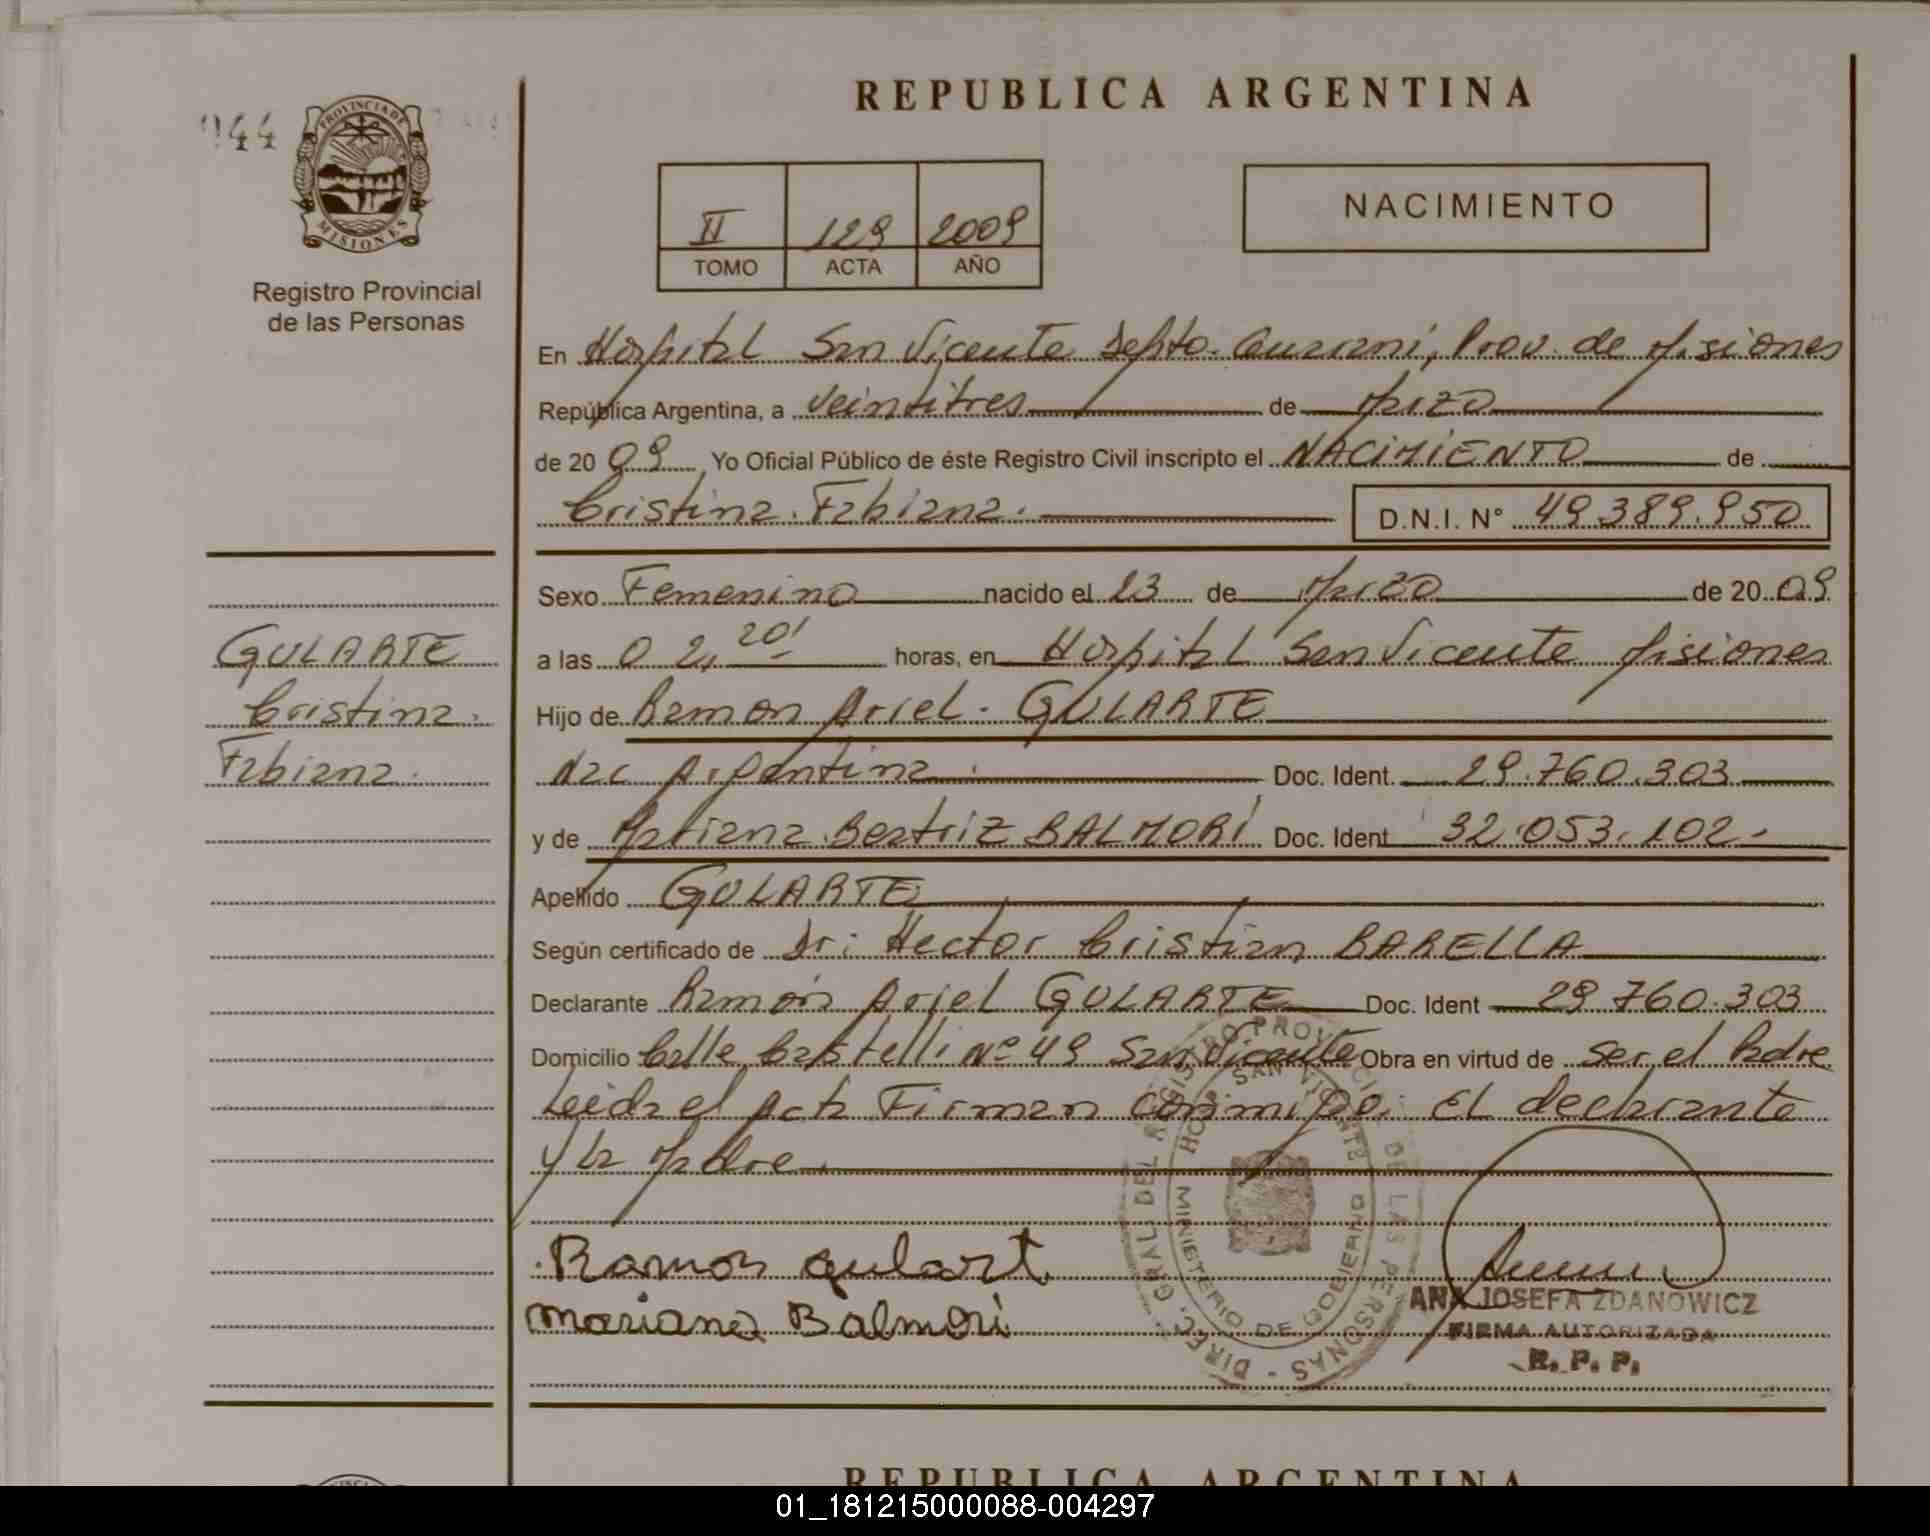 REPUBLICA ARGENTINA
044
PROVINCIA DE
MISIONES
Registro Provincial
de las Personas
II 129 2009
TOMO ACTA AÑO
NACIMIENTO
En Hospital San Vicente Depto. Guarani, Prov. de Misiones
República Argentina, a veintitres de Marzo
de 20 09 Yo Oficial Público de éste Registro Civil inscripto el NACIMIENTO de
Cristina Fabiana. D.N.I. N° 49.389.950
Sexo Femenino nacido el 23 de Marzo de 20 09
a las 02, 20' horas, en Hospital San Vicente Misiones
Hijo de Ramon Ariel GULARTE
Nac Argentina. Doc. Ident. 29.760.303
y de Mariana Beatriz BALMORI Doc. Ident 32.053.102.
Apellido GULARTE
Según certificado de Dr: Hector Cristian BARELLA
Declarante Ramón Ariel GULARTE Doc. Ident 29 760.303
Domicilio Calle Castelli Nº 49 San Vicente Obra en virtud de ser el Padre
Leida el Acta Firman conmigo. El declarante
y la Madre.
GULARTE
Cristina.
Fabiana.
Ramon gulart
Mariana Balmori
DIREC. GRAL. DEL REGISTRO PROVINCIAL DE LAS PERSONAS -
HOSP. SAN VICENTE
MINISTERIO DE GOBIERNO
ANA JOSEFA ZDANOWICZ
FIRMA AUTORIZADA
R. P. P.
REPUBLICA ARGENTINA
01_181215000088-004297